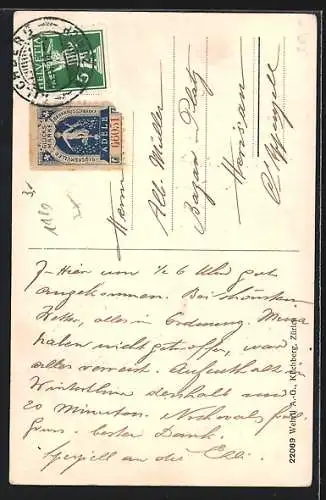 HELVETIA
5
GLÜCKSMARKE
ADELE
66051
Herrn
Alb. Müller
Bazar - Platz
Herisau
Ct. Appenzell
Hier um ½ 6 Uhr gut
angekommen. Bei schönstem
Wetter, alles in Ordnung.
haben nicht getroffen, war
alles verreist. Aufenthalt
Winterthur deshalb nur
20 Minuten. Nochmals
Gruss. besten Dank.
Speziell an die
22069 Wehrli A.-G., Kilchberg, Zürich